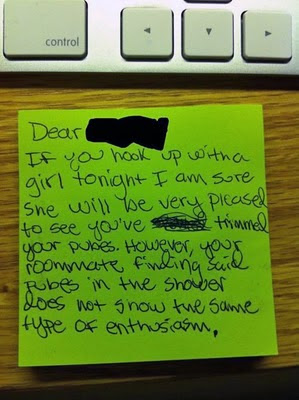 control
Dear
If you hook up with a
girl tonight I am sure
she will be very pleased
to see you've trimmed
your pubes. However, your
roommate finding said
pubes in the shower
does not show the same
type of enthusiasm.